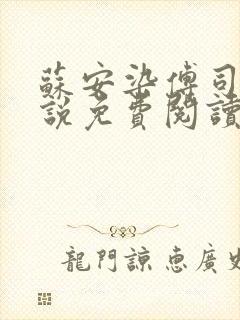 蘇安染傅司
說免費閱讀
龍門諒惠廣